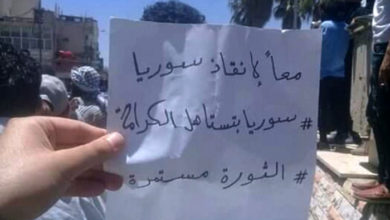 معاً لإنقاذ سوريا
# سوريا بتستاهل الكرامة
# الثورة مستمرة